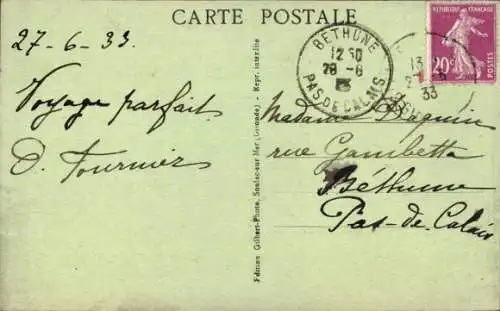 CARTE POSTALE
27-6-33.
Voyage parfait.
D. Fournier
Edition Gilbert-Photo, Soulac-sur Mer (Gironde) - Repr. interdite
BETHUNE
12 50
28-6
33
PAS DE CALAIS
13
33
REPUBLIQUE FRANÇAISE
20c
POSTES
Madame
rue Gambetta
Béthune
Pas-de-Calais